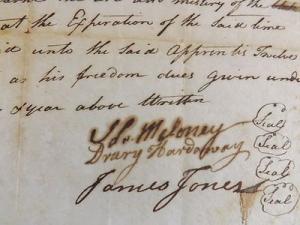 and mistery of the
at the Expiration of the Said time
unto the Said Apprentis Twelve
as his freedom dues given under
& year above Written
Moloney
Drury Hardaway
James Jones
Seal
Seal
Seal
Seal